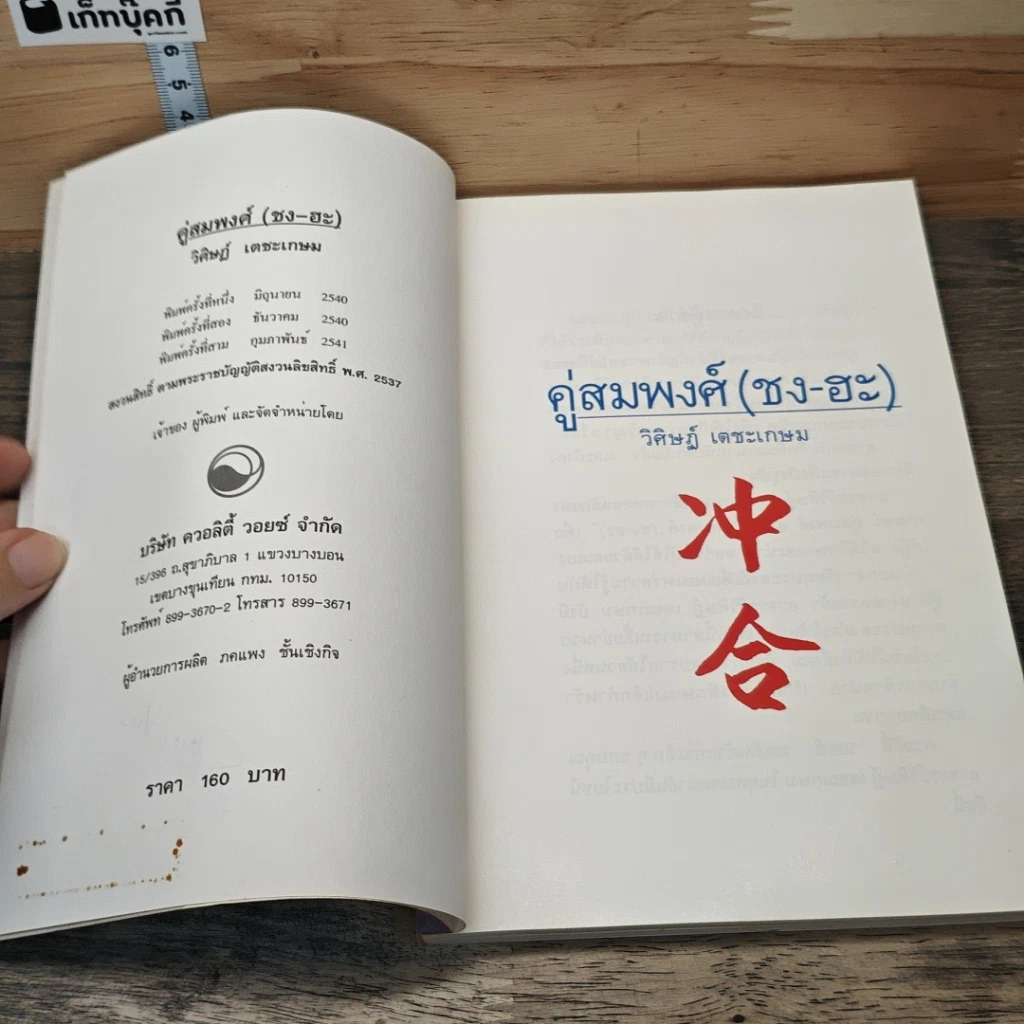 เก็ทบุ๊คกี
6
5
4
คู่สมพงศ์ (ชง-ฮะ)
วิศิษฏ์ เตชะเกษม
พิมพ์ครั้งที่หนึ่ง มิถุนายน 2540
พิมพ์ครั้งที่สอง ธันวาคม 2540
พิมพ์ครั้งที่สาม กุมภาพันธ์ 2541
สงวนสิทธิ์ ตามพระราชบัญญัติสงวนลิขสิทธิ์ พ.ศ. 2537
เจ้าของ ผู้พิมพ์ และจัดจำหน่ายโดย
บริษัท ควอลิตี้ วอยซ์ จำกัด
15/396 ถ.สุขาภิบาล 1 แขวงบางบอน
เขตบางขุนเทียน กทม. 10150
โทรศัพท์ 899-3670-2 โทรสาร 899-3671
ผู้อำนวยการผลิต ภคแพง ชั้นเชิงกิจ
ราคา 160 บาท
คู่สมพงศ์ (ชง-ฮะ)
วิศิษฏ์ เตชะเกษม
冲
合